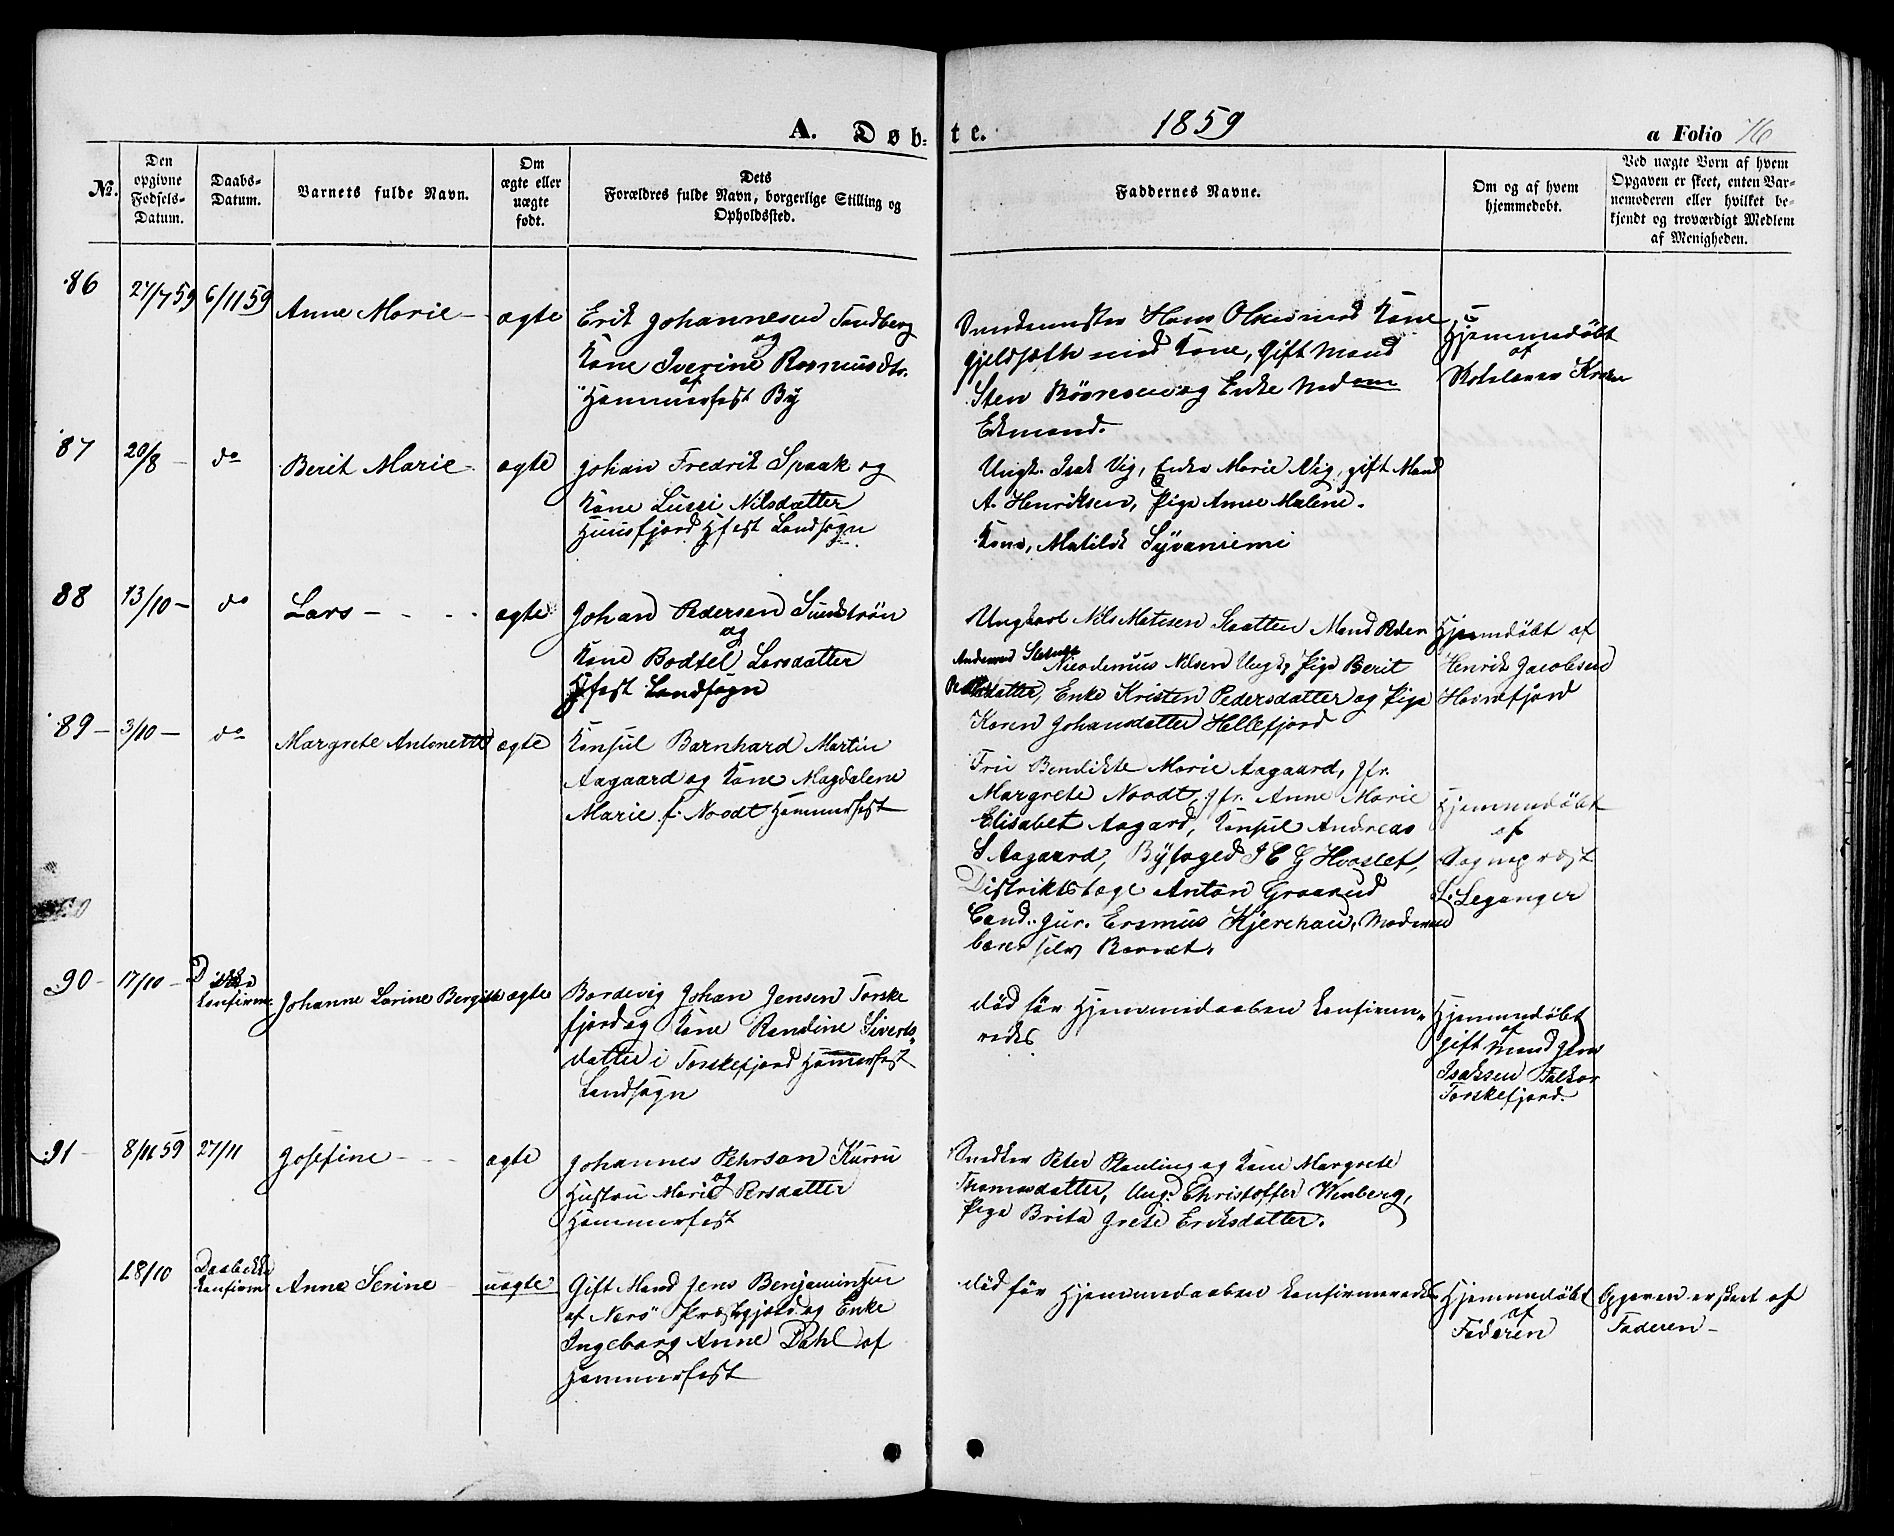 A. Døb-
te.
1859
a Folio 76
No.
Den opgivne Fødsels-Datum.
Daabs-Datum.
Varnets fulde Navn.
Om ægte eller uægte født.
Dets Forældres fulde Navn, borgerlige Stilling og Opholdssted.
Faddernes Navne.
Om og af hvem hjemmedøbt.
Ved uægte Børn af hvem Opgaven er skeet, enten Bar-nemoderen eller hvilket be-kjendt og troværdigt Medlem af Menigheden.
86
27/7 59
6/11 59
Anne Marie
ægte
Erik Johannesen Sandberg
og
Kone Iverine Rasmusdtr.
af
Hammerfest By
Hans Olsen med Kone
med Kone, Gift Mand
Sten og Enke Madame
Edmand.
Hjemmedøbt
af
87
20/8
do
Berit Marie
ægte
Johan Fredrik Spaak og
Kone Lussi Nilsdatter
Hfest Landsogn
Ungk. Isak Vig, Enke Marie Vig, gift Mand
A. Henriksen, Pige Anne Malene.
Kone, Matilde Syvaniemi
88
13/10
do
Lars
ægte
Johan Pedersen Sundstrøn
og
Kone Bodtel Larsdatter
Hfest Landsogn
Ungkarl Nils Matisen Mand Peder
Andersen
Nicodemus Nilsen Ungk, Pige Berit
Enke Kristen Pedersdatter og Pige
Karen Johansdatter Hellefjord
Hjemdøbt af
Henrik Jacobsen
89
3/10
do
Margrete Antonette
ægte
Konsul Barnhard Martin
Aagaard og Kone Magdalene
Marie f. Noodt Hammerfest
Frue Bendikte Marie Aagaard, Jfr.
Margrete Noodt, Jfr. Anne Marie
Elisabet Aagard, Konsul Andreas
S Aagaard, Byfoged I C G Hvoslef,
Distriktslæge Anton Graarud
Cand. jur. Ersmus Kjerchau, Moderen
bærer selv Barnet.
Hjemmedøbt
af
Sogneprest
L. Leganger
90
17/10
Konfirm.
Johanne Larine Bergitte
ægte
Bordevig Johan Jensen Torske
fjord og Kone Randine Siverts-
datter i Torskefjord Hammerfest
Landsogn
død før Hjemmedaaben konfirme-
redes
Hjemmedøbt
af
gift Mand Jens
Isaksen
Torskefjord.
91
8/11 59
27/11
Josefine
ægte
Johannes Pehrson Kurru
og
Hustru Marie Persdatter
Hammerfest
Snedker Peter Plauling og Kone Margrete
Thomasdatter, Ung. Christoffer Wenberg,
Pige Brita Grete Eriksdatter.
28/10
Konfirm
Anne Serine
uægte
Gift Mand Jens Benjaminsen
af Nærø Præstegjeld og Enke
Ingeborg Anne Dahl af
Hammerfest
død før Hjemmedaaben konfirmeredes
Hjemmedøbt
af
Faderen
Opgaven er skeet af
Faderen